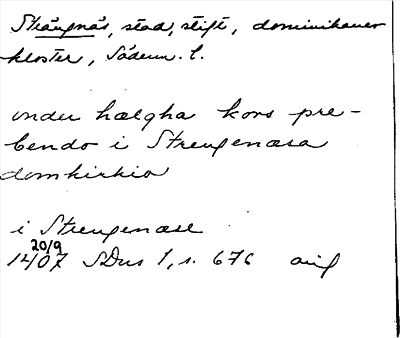 Strängnäs, stad, stift, dominikaner
kloster, Söderm. l.
under hælgha kors pre-
bendo i Strengenæsa
domkirkio
i Strengenæse
20/9
1407 SDns 1, s. 676 orig